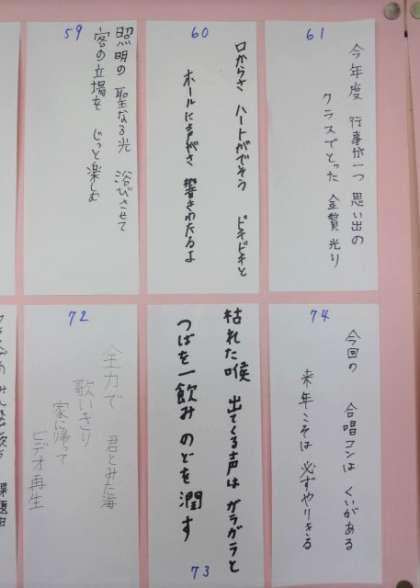 59
照明の 聖なる光 浴びさせて
客の立場を じっと楽しむ
60
口からさ ハートがでそう ドキドキと
ホールに声がさ 響きわたるよ
61
今年度 行事が一つ 思い出の
クラスでとった 金賞光り
72
全力で 君とみた海
歌いきり
家に帰って
ビデオ再生
73
枯れた喉 出てくる声は ガラガラと
つばを一飲み のどを潤す
74
今回の 合唱コンは くいがある
来年こそは 必ずやりきる